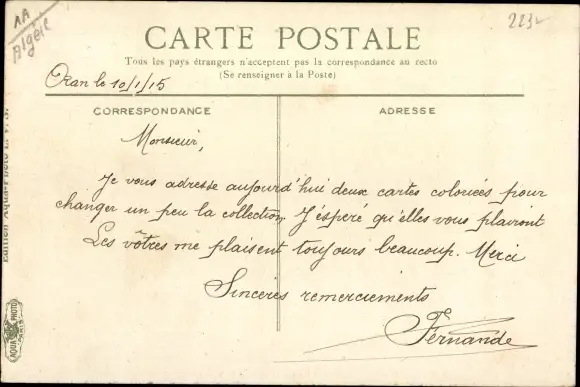 AA
Algérie
223
CARTE POSTALE
Tous les pays étrangers n'acceptent pas la correspondance au recto
(Se renseigner à la Poste)
Oran le 10/1/15
CORRESPONDANCE
ADRESSE
Monsieur,
Je vous adresse aujourd'hui deux cartes coloriées pour
changer un peu la collection. J'espére qu'elles vous plairont
Les vôtres me plaisent toujours beaucoup. Merci
Sincères remerciements
Fernande
AQUA PHOTO
PARIS